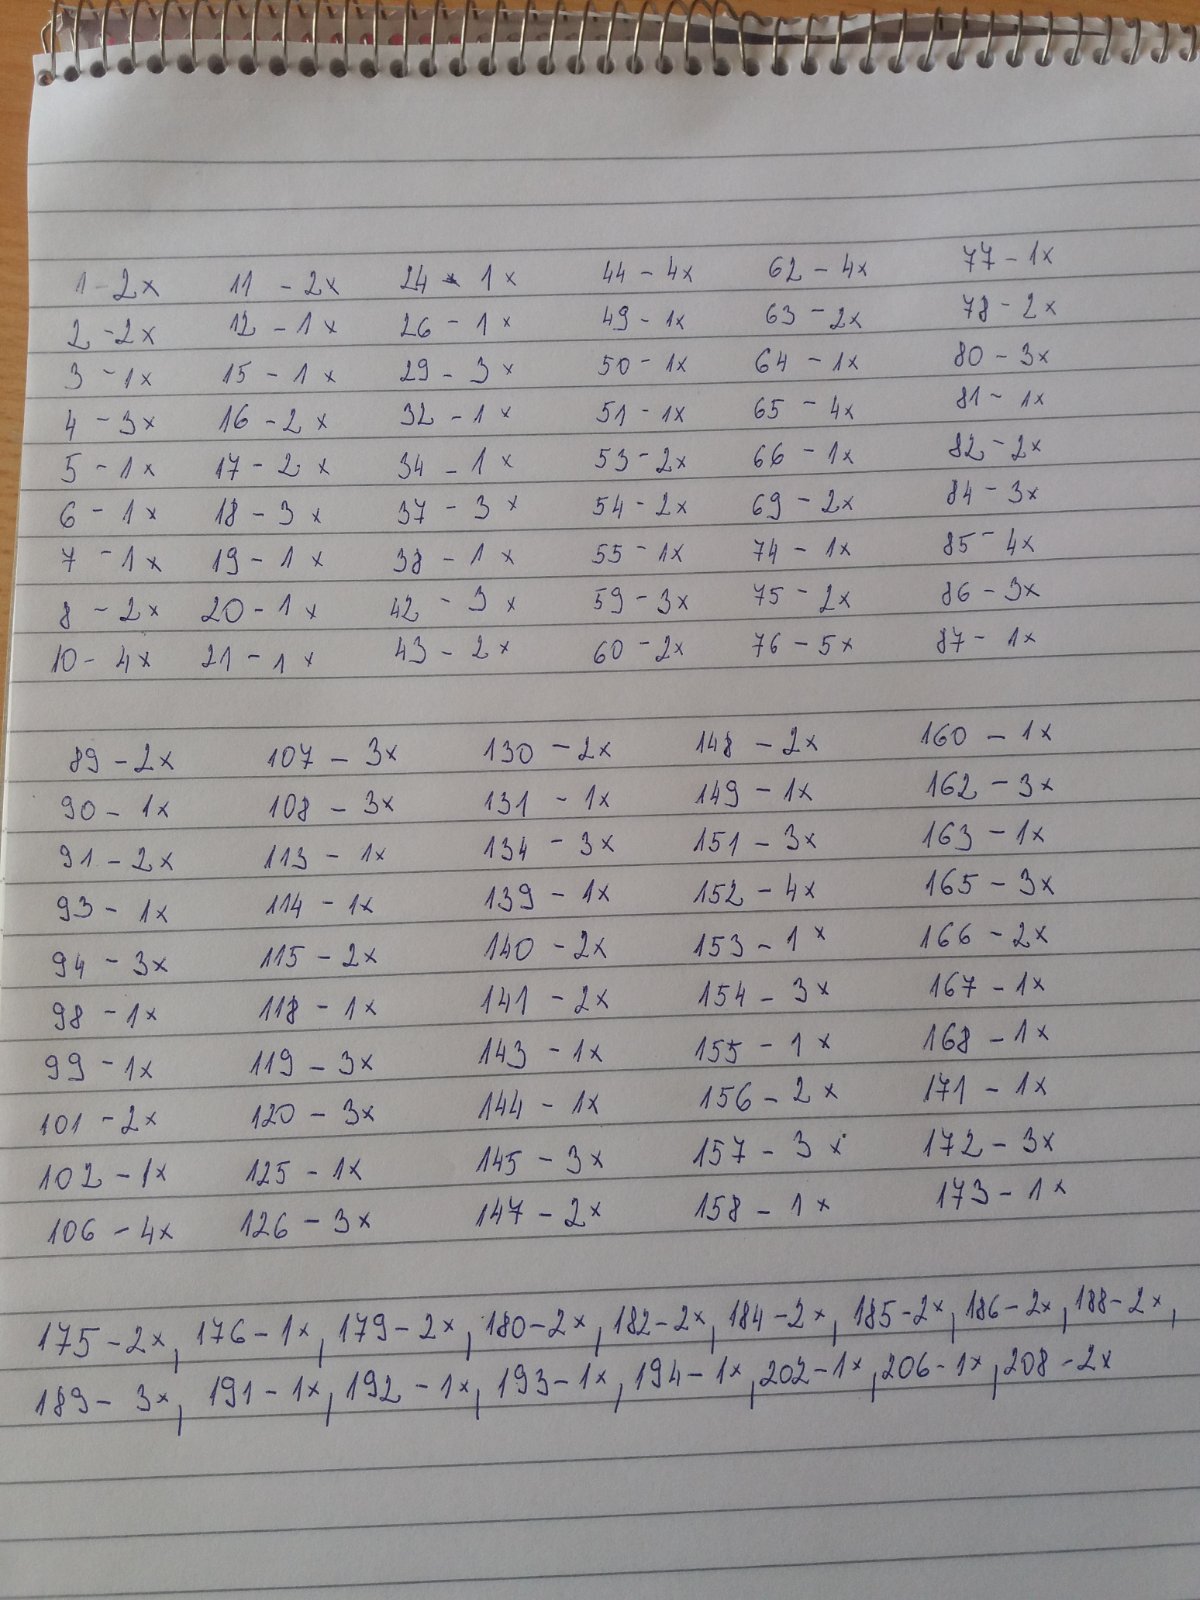 1 - 2x 11 - 2x 24 - 1x 44 - 4x 62 - 4x 77 - 1x
2 - 2x 12 - 1x 26 - 1x 49 - 1x 63 - 2x 78 - 2x
3 - 1x 15 - 1x 29 - 3x 50 - 1x 64 - 1x 80 - 3x
4 - 3x 16 - 2x 32 - 1x 51 - 1x 65 - 4x 81 - 1x
5 - 1x 17 - 2x 34 - 1x 53 - 2x 66 - 1x 82 - 2x
6 - 1x 18 - 3x 37 - 3x 54 - 2x 69 - 2x 84 - 3x
7 - 1x 19 - 1x 38 - 1x 55 - 1x 74 - 1x 85 - 4x
8 - 2x 20 - 1x 42 - 3x 59 - 3x 75 - 2x 86 - 3x
10 - 4x 21 - 1x 43 - 2x 60 - 2x 76 - 5x 87 - 1x
89 - 2x 107 - 3x 130 - 2x 148 - 2x 160 - 1x
90 - 1x 108 - 3x 131 - 1x 149 - 1x 162 - 3x
91 - 2x 113 - 1x 134 - 3x 151 - 3x 163 - 1x
93 - 1x 114 - 1x 139 - 1x 152 - 4x 165 - 3x
94 - 3x 115 - 2x 140 - 2x 153 - 1x 166 - 2x
98 - 1x 118 - 1x 141 - 2x 154 - 3x 167 - 1x
99 - 1x 119 - 3x 143 - 1x 155 - 1x 168 - 1x
101 - 2x 120 - 3x 144 - 1x 156 - 2x 171 - 1x
102 - 1x 125 - 1x 145 - 3x 157 - 3x 172 - 3x
106 - 4x 126 - 3x 147 - 2x 158 - 1x 173 - 1x
175 - 2x, 176 - 1x, 179 - 2x, 180 - 2x, 182 - 2x, 184 - 2x, 185 - 2x, 186 - 2x, 188 - 2x,
189 - 3x, 191 - 1x, 192 - 1x, 193 - 1x, 194 - 1x, 202 - 1x, 206 - 1x, 208 - 2x